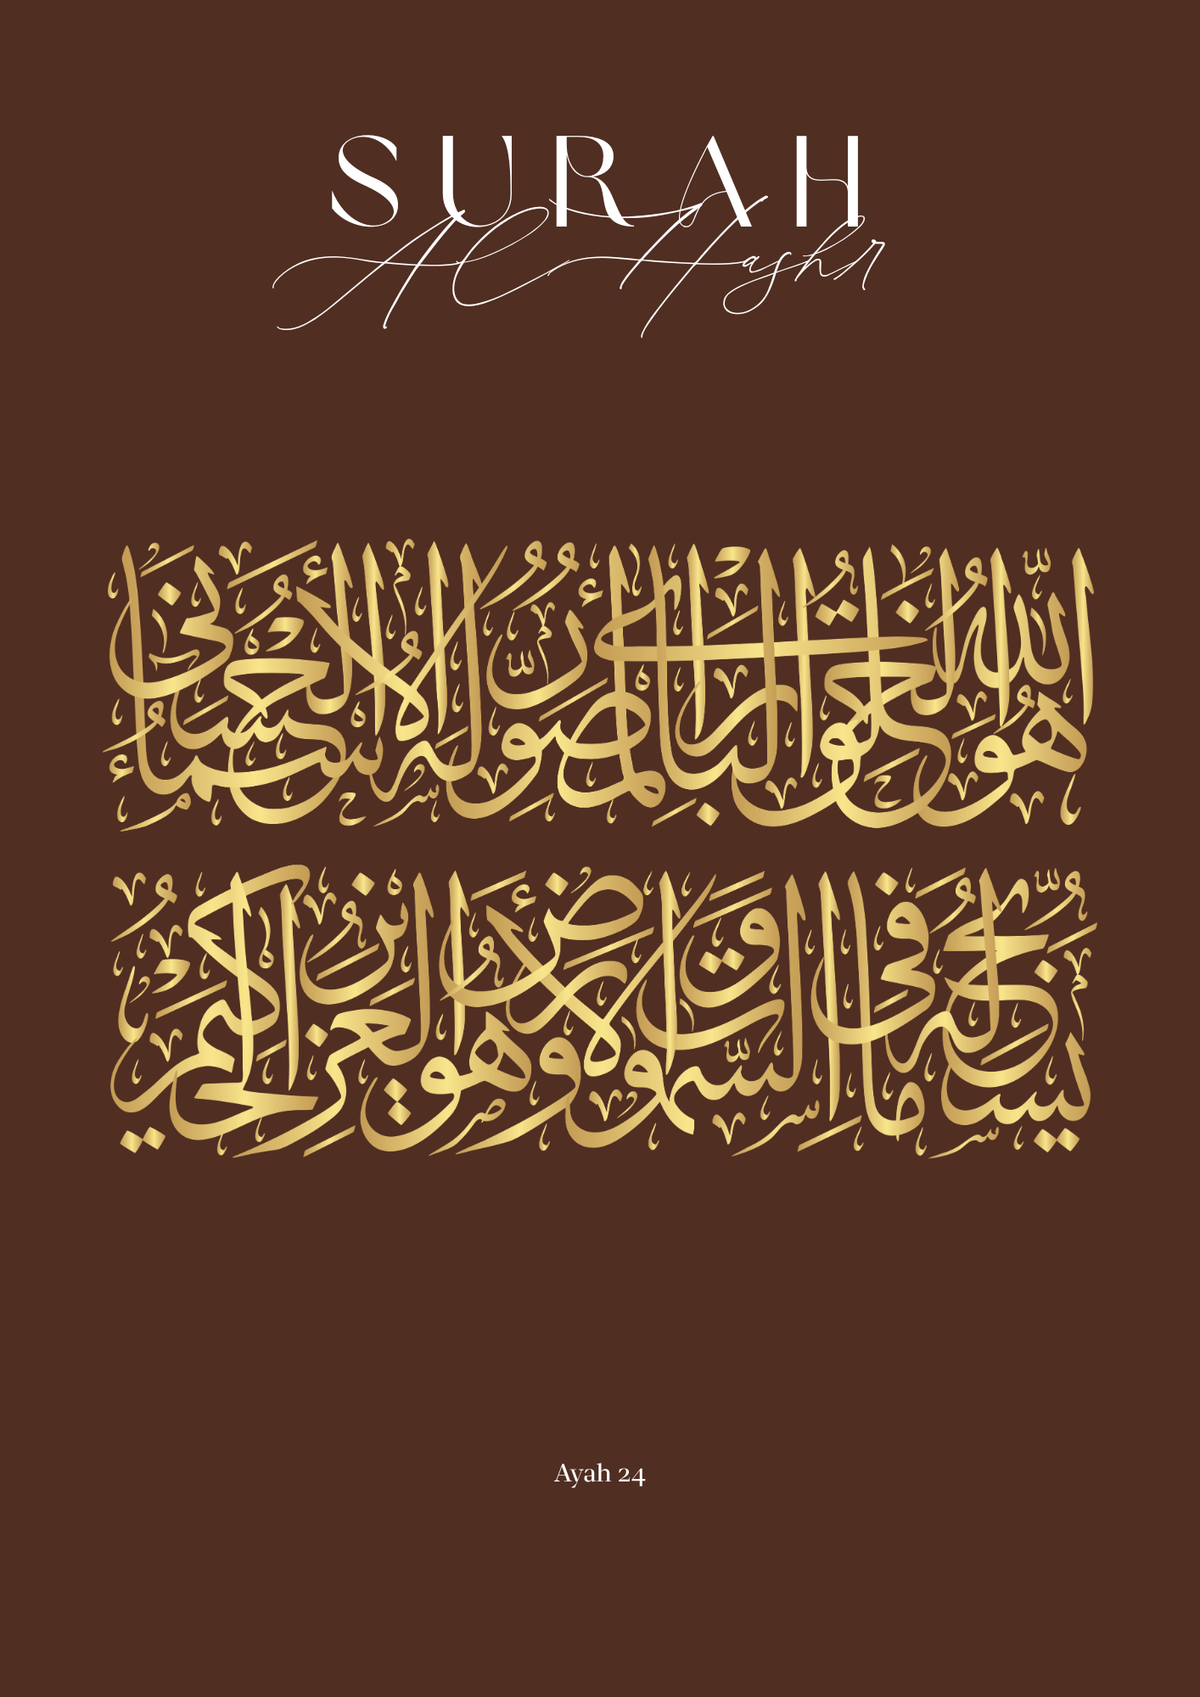 SURAH
Al Hashr
هُوَ اللَّهُ الْخَالِقُ الْبَارِئُ الْمُصَوِّرُ لَهُ الْأَسْمَاءُ الْحُسْنَى
يُسَبِّحُ لَهُ مَا فِي السَّمَوَاتِ وَالْأَرْضِ وَهُوَ الْعَزِيزُ الْحَكِيمُ
Ayah 24